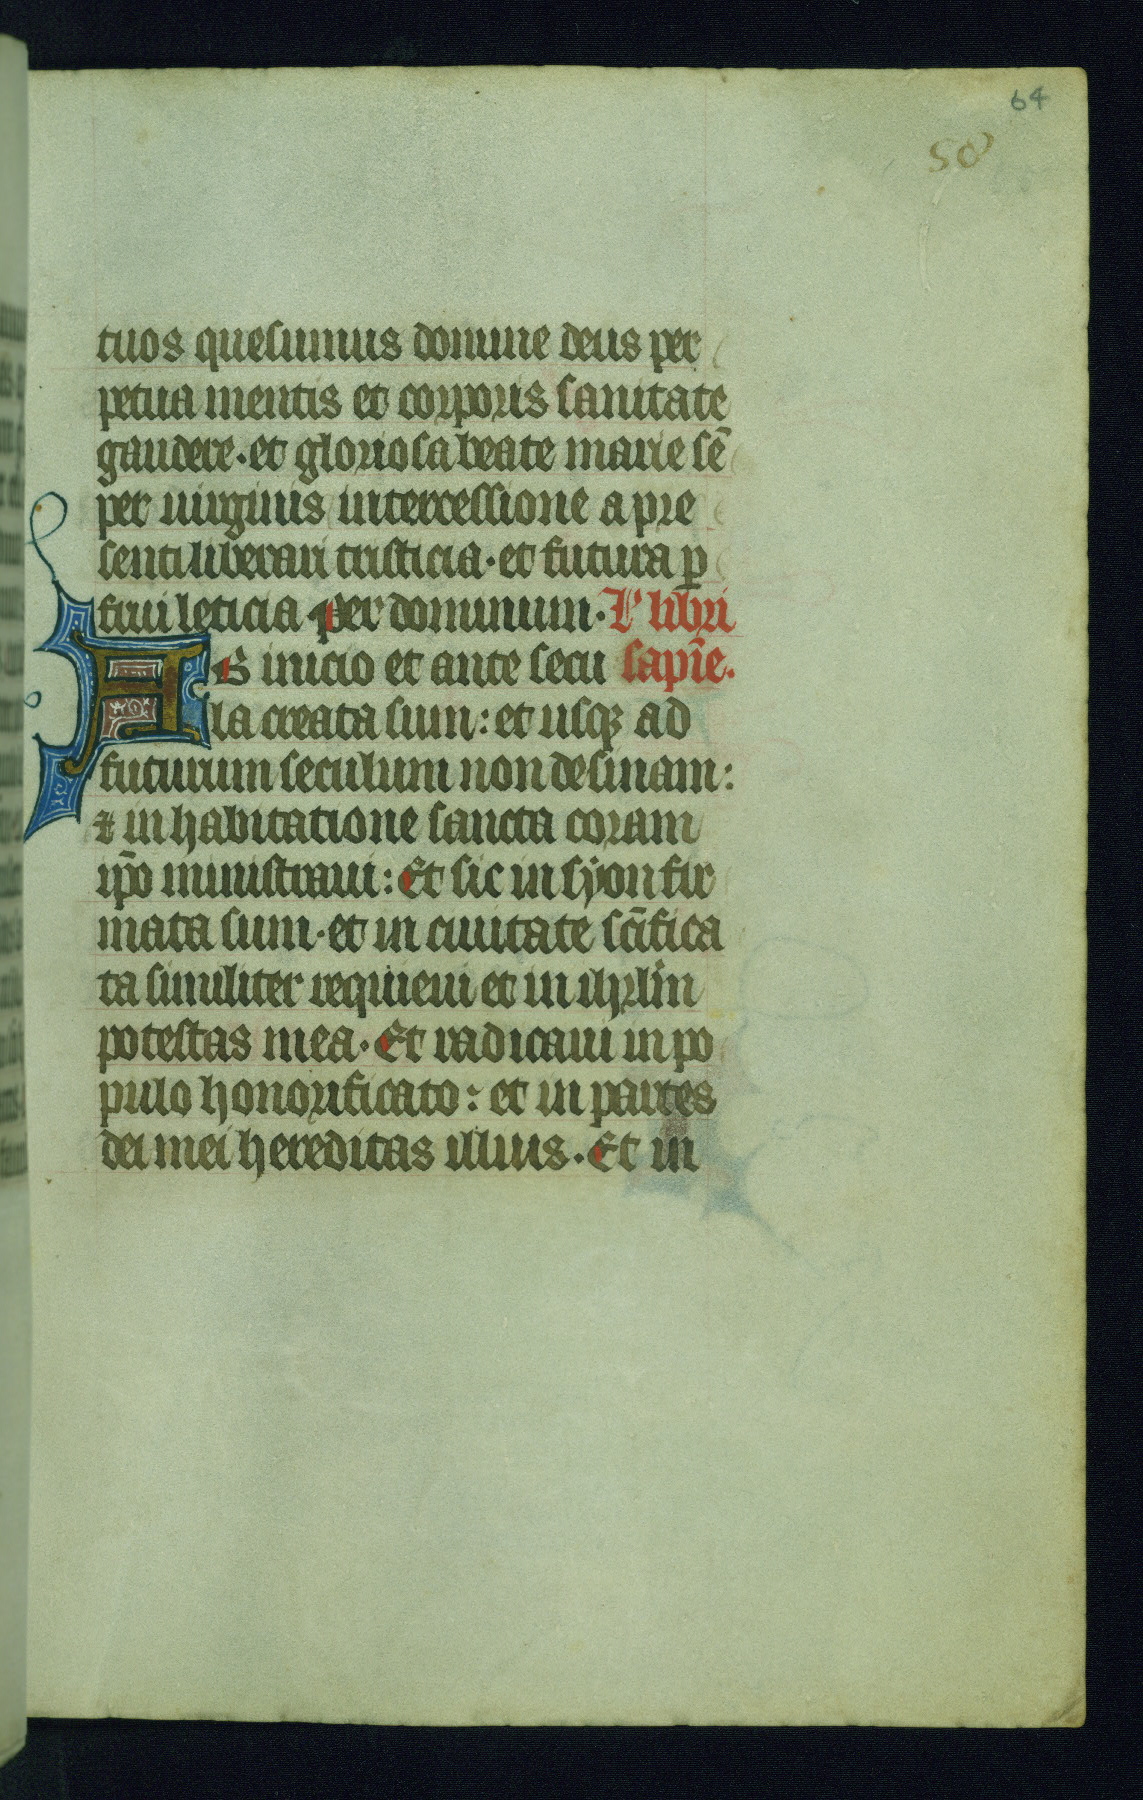 64
58
tuos quesumus domine deus per
petua mentis et corporis sanitate
gaudere · et gloriosa beate marie sē
per uirginis intercessione a pre
senti liberari tristicia · et futura ꝑ
frui leticia per dominum · L' libri
AB inicio et ante secu sapīe.
la creata sum : et usqꝫ ad
futurum seculum non desinam :
⁊ in habitatione sancta coram
ip̄o ministraui : Et sic in syon fir
mata sum · et in ciuitate sc̄ifica
ta similiter requieui et in ihrl̄m
potestas mea · Et radicaui in po
pulo honorificato : et in partes
dei mei hereditas illius · Et in